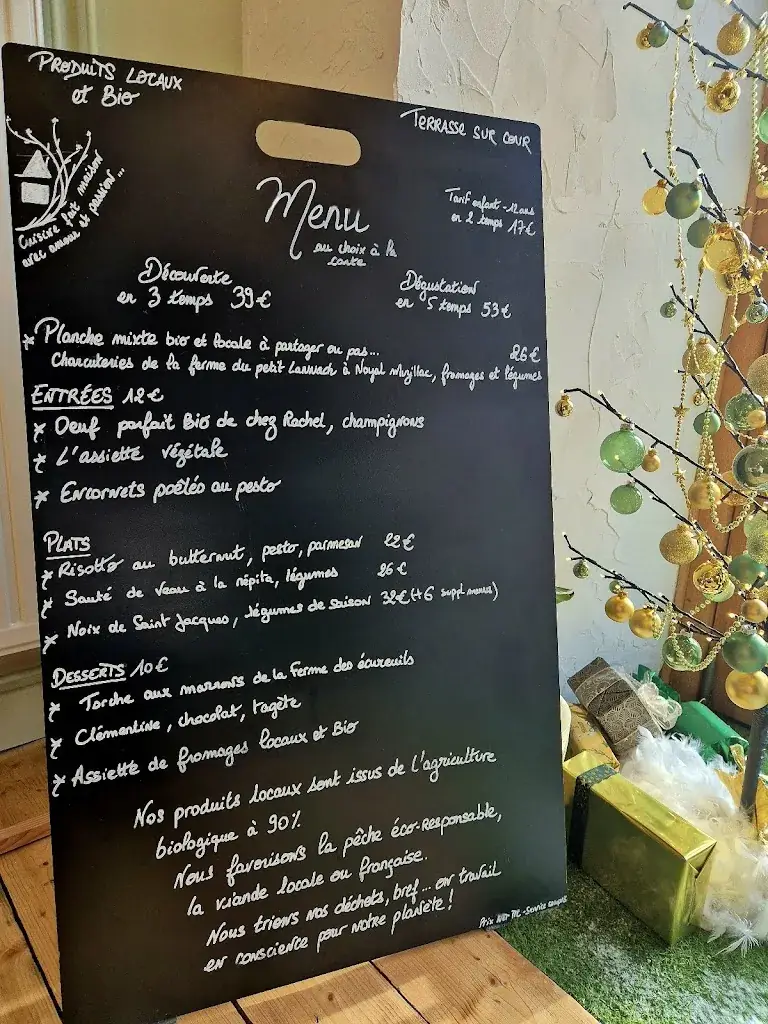 PRODUITS LOCAUX
et Bio
TERRASSE SUR COUR
Cuisine fait maison
avec amour et passion...
Menu
au choix à la
carte
Tarif enfant -12 ans
en 2 temps 17€
Découverte
en 3 temps 39€
Dégustation
en 5 temps 53€
* Planche mixte bio et locale à partager ou pas... 26€
Charcuteries de la ferme du petit Lannach à Noyal Muzillac, fromages et légumes
ENTRÉES 12€
* Oeuf parfait Bio de chez Rachel, champignons
* L'assiette végétale
* Encornets poêlés au pesto
PLATS
* Risotto au butternut, pesto, parmesan 22€
* Sauté de veau à la népita, légumes 26€
* Noix de Saint Jacques, légumes de saison 32€ (+6 suppl menus)
DESSERTS 10€
* Torche aux marrons de la ferme des écureuils
* Clémentine, chocolat, tagète
* Assiette de fromages locaux et Bio
Nos produits locaux sont issus de l'agriculture
biologique à 90%
Nous favorisons la pêche éco-responsable,
la viande locale ou française.
Nous trions nos déchets, bref... on travail
en conscience pour notre planète!
Prix Net TTC - Service compris